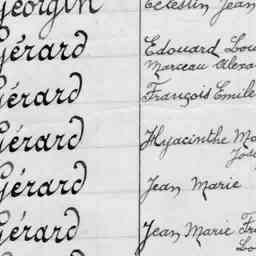 Georgin Célestin Jean
Gérard Edouard Lou
Marceau Alexa
Gérard François Emile
Gérard Hyacinthe Ma
Gérard Jean Marie
Gérard Jean Marie Fr
Lo